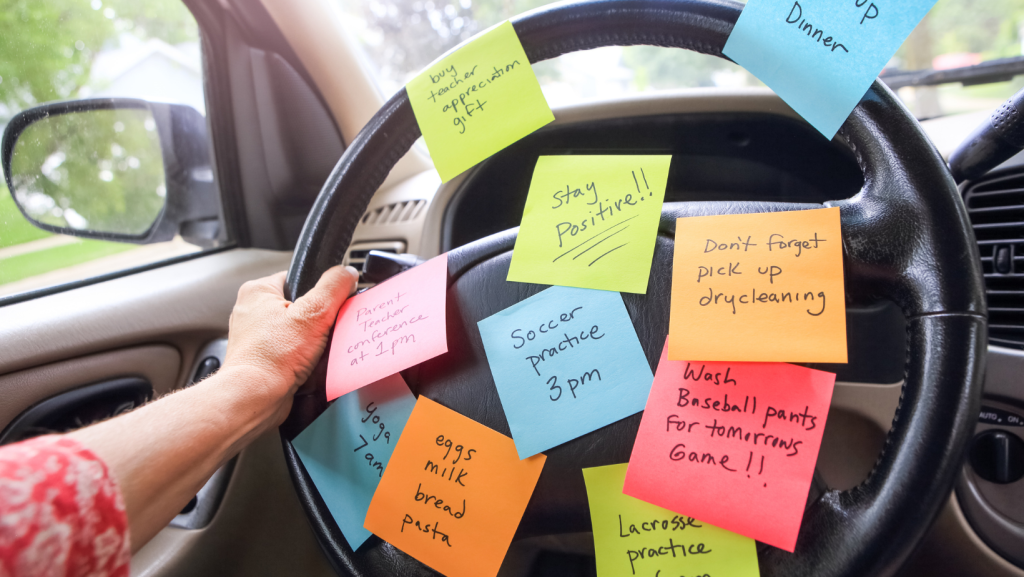 up
Dinner
buy
teacher
appreciation
gift
Stay
Positive!!
Don't forget
pick up
drycleaning
Parent
Teacher
conference
at 1pm
Soccer
practice
3pm
Wash
Baseball pants
For tomorrows
Game!!
Yoga
7am
eggs
milk
bread
pasta
Lacrosse
practice
AUTO